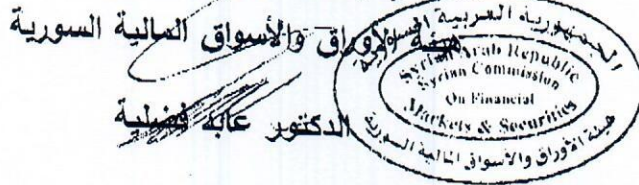 هيئة الأوراق والأسواق المالية السورية
الدكتور عابد فضلية
الجمهورية العربية السورية
Syrian Arab Republic
Syrian Commission
On Financial
Markets & Securities
هيئة الأوراق والأسواق المالية السورية